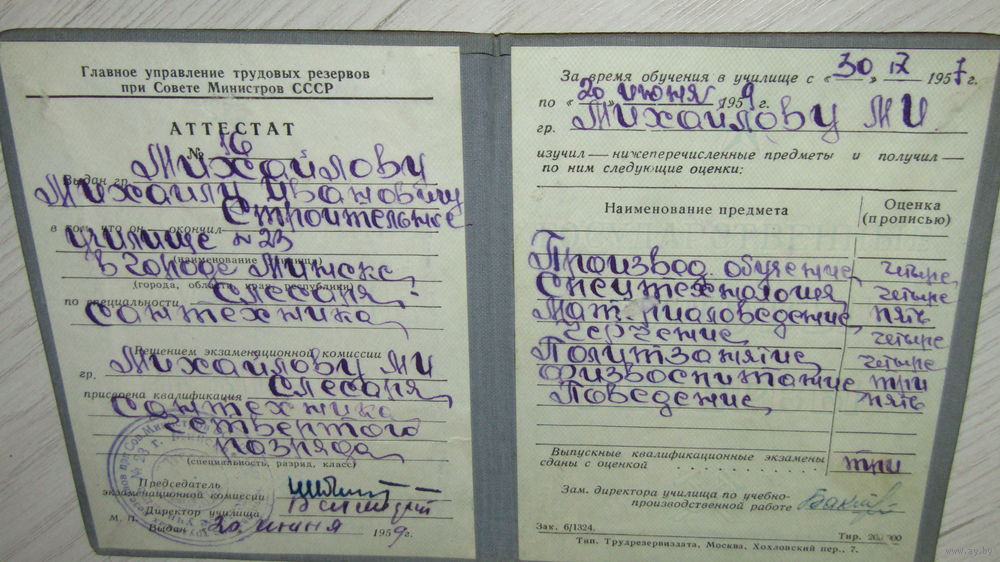 Главное управление трудовых резервов
при Совете Министров СССР
АТТЕСТАТ
№ 16
Выдан гр. Михайлову
Михаилу Ивановичу
в том, что он окончил Строительное
училище №23
(наименование училища)
в городе Минске
(города, области, края, республики)
по специальности Слесаря-
сантехника
Решением экзаменационной комиссии
гр. Михайлову МИ
присвоена квалификация Слесаря
сантехника
четвертого
разряда
(специальность, разряд, класс)
Председатель
экзаменационной комиссии
Директор училища
М. П.
Выдан 20 июня 1959 г.
За время обучения в училище с «30» IX 1957 г.
по «20» июня 1959 г.
гр. Михайлову МИ.
изучил — нижеперечисленные предметы и получил —
по ним следующие оценки:
Наименование предмета Оценка
(прописью)
Производ. обучение четыре
Спецтехнология четыре
Мат. риаловедение пять
Черчение четыре
Политзанятие четыре
Физвоспитание три
Поведение пять
Выпускные квалификационные экзамены
сданы с оценкой три
Зам. директора училища по учебно-
производственной работе
Зак. 6/1324. Тир.
Тип. Трудрезервиздата, Москва, Хохловский пер., 7.
www.ay.by